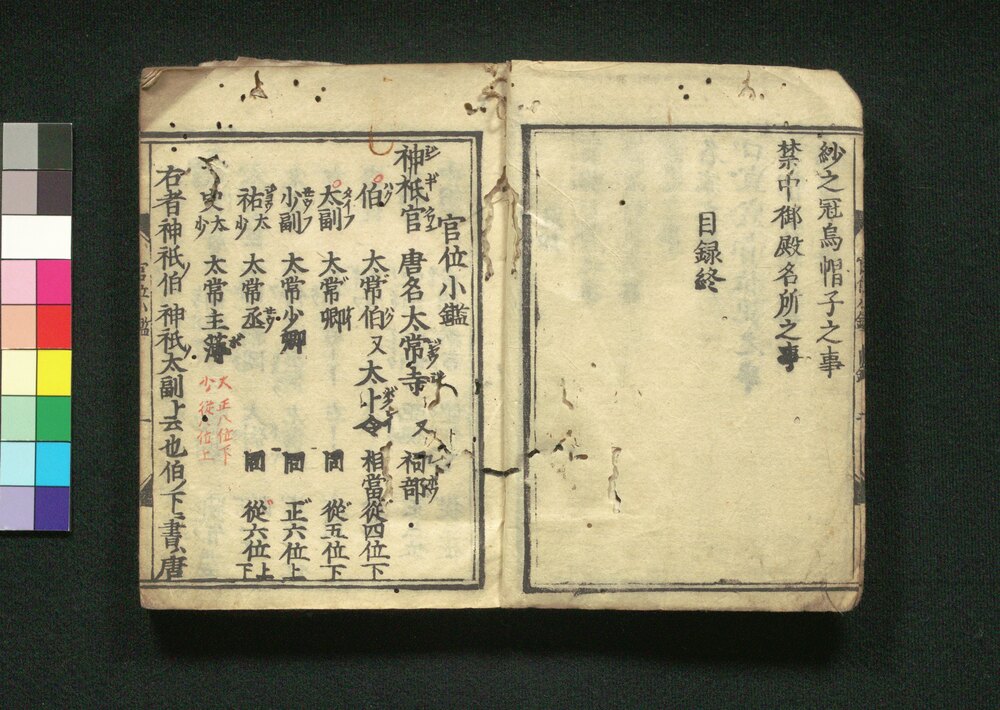 紗之冠烏帽子之事
禁中御殿名所之事
目録終
官位小鑑
神祇官 唐名太常寺 又 祠部
伯 太常伯 又 太卜令 相當從四位下
太副 太常卿 同 從五位下
少副 太常少卿 同 正六位上
祐 太少 太常丞 同 從六位上下
史 太少 太常主簿
大 正八位下
少 從八位上
右者神祇伯 神祇太副ト云也伯ノ下ニ書ハ唐
官位小鑑